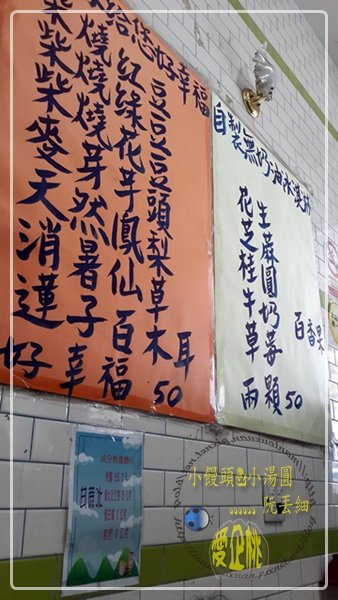 給您好幸福
柴燒紅豆
柴燒綠豆
柴燒花豆
麥芽芋頭
天然鳳梨
消暑仙草
蓮子百木耳
好幸福 50
自製無奶油冰淇淋
花生
芝麻
桂圓
牛奶
草莓 百香果
兩顆50
小饅頭 小湯圓
...... 阮丟細
愛企桃